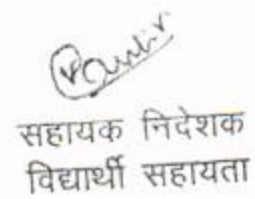 सहायक निदेशक
विद्यार्थी सहायता